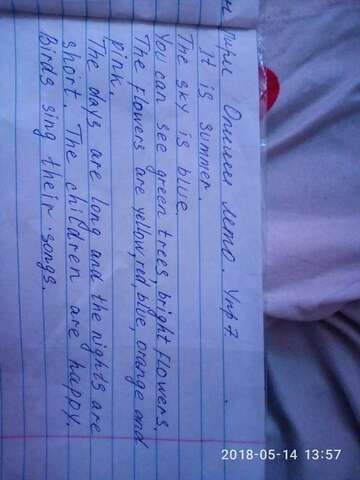 Опиши лето. Упр 7
It is summer.
The sky is blue.
You can see green trees, bright flowers.
The flowers are yellow, red, blue, orange and
pink.
The days are long and the nights are
short. The children are happy.
Birds sing their songs.
2018-05-14 13:57